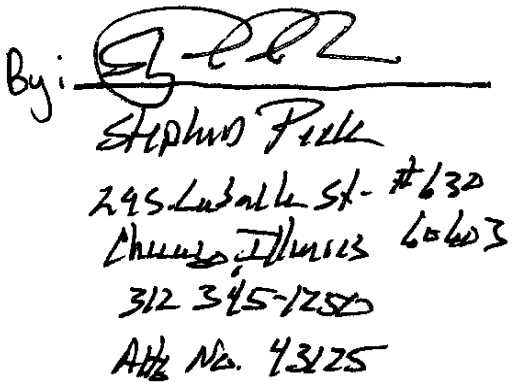 By:
Stephen Peek
29 S. LaSalle St- #630
Chicago, Illinois 60603
312 345-1250
Atty No. 43125